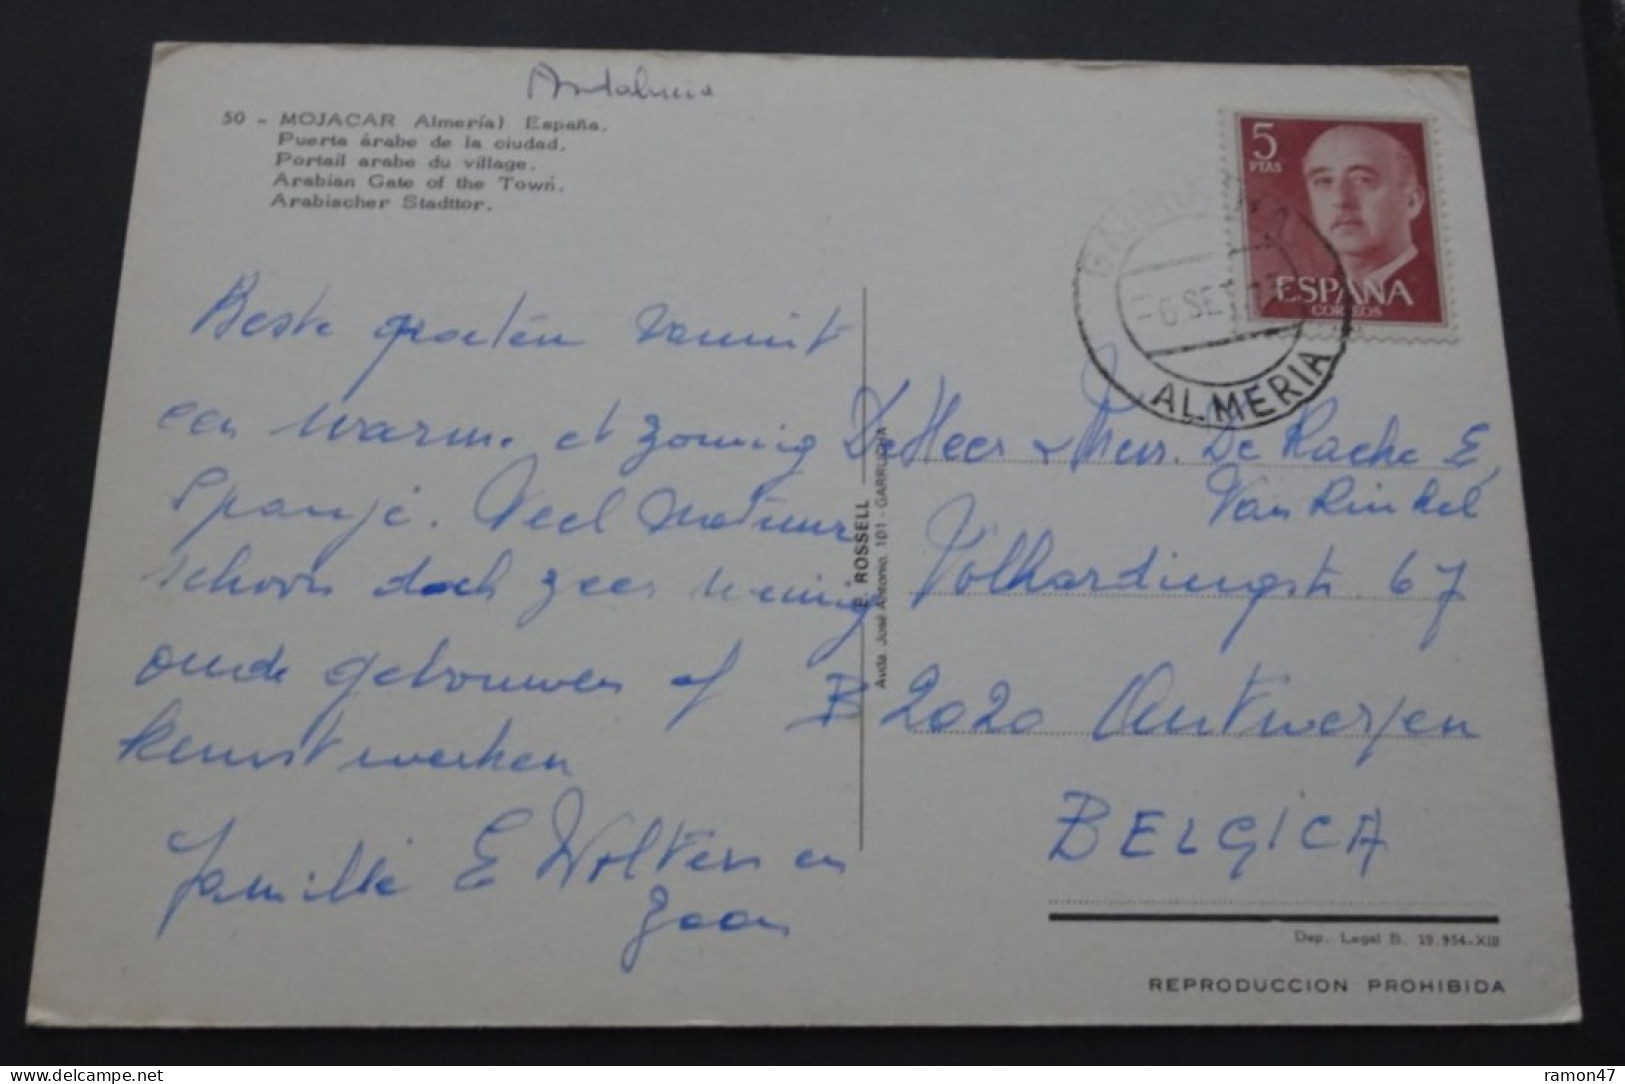 Andalucia
50 - MOJACAR Almería) España.
Puerta árabe de la ciudad.
Portail arabe du village.
Arabian Gate of the Town.
Arabischer Stadttor.
5
PTAS
ESPAÑA
CORREOS
-6.SET
ALMERIA
Beste groeten vanuit
een warm. et zonnig
Spanje. Veel natuur
schoon doch zeer weinig
oude gebouwen of
kunstwerken
Familie E Wolters en
zoon
E. ROSSELL
Avda. José Antonio, 101 - GARRUCHA
De Heer & Mevr. De Rache E,
Van Rinkel
Volhardingstr. 67
B 2020 Antwerpen
BELGICA
Dep. Legal B. 19.954-XIII
REPRODUCCION PROHIBIDA
ramon47